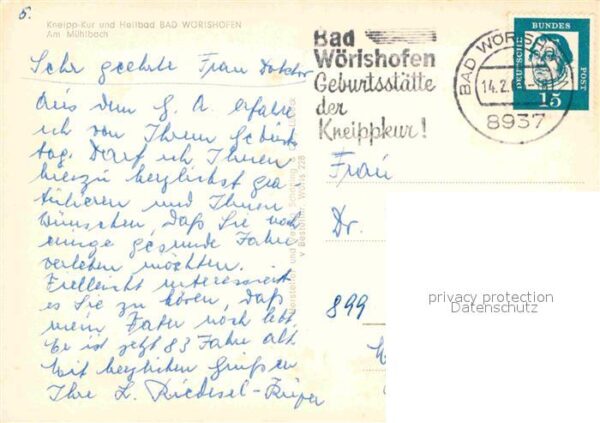 5.
Kneipp-Kur und Heilbad BAD WÖRISHOFEN
Am Mühlbach
Sehr geehrte Frau Doktor
Aus dem G. A. erfahre
ich von Ihrem Geburts
tag. Darf ich Ihnen
hierzu herzlichst gra
tulieren und Ihnen
wünschen, daß Sie noch
einige gesunde Jahre
verleben möchten.
Vielleicht interessiert
es Sie zu hören, daß
mein Vater noch lebt.
Er ist jetzt 83 Jahre alt.
Mit herzlichen Grüßen
Ihre L. Riedesel-
Bad
Wörishofen
Geburtsstätte
der
Kneippkur!
BAD WÖRISHO
14.2.6
8937
DEUTSCHE BUNDES POST
15
Frau
Dr.
899
privacy protection
Datenschutz
v Bestellnr. Wöris 228